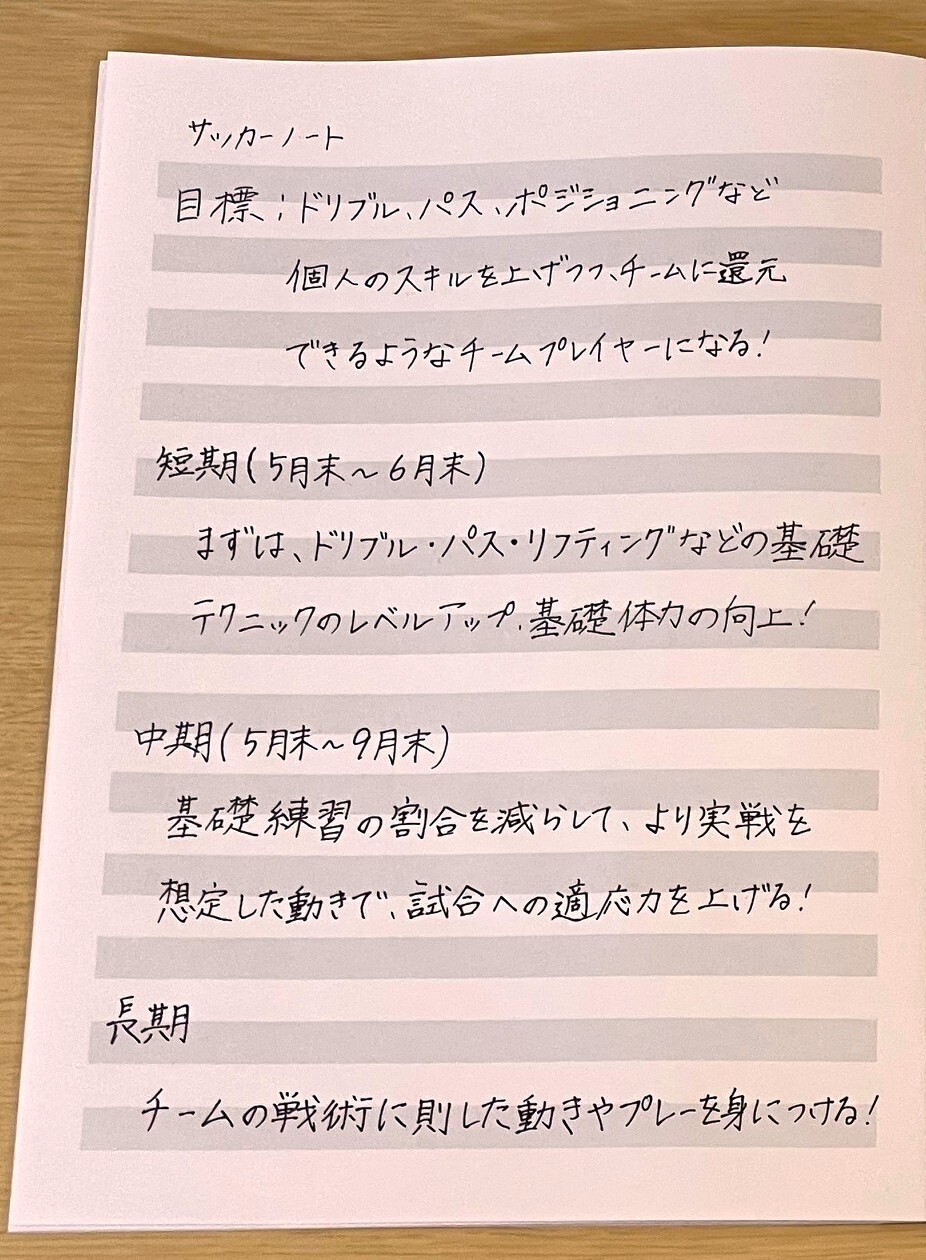 サッカーノート
目標;ドリブル、パス、ポジショニングなど
個人のスキルを上げつつ、チームに還元
できるようなチームプレイヤーになる!
短期(5月末~6月末)
まずは、ドリブル・パス・リフティングなどの基礎
テクニックのレベルアップ、基礎体力の向上!
中期(5月末~9月末)
基礎練習の割合を減らして、より実戦を
想定した動きで、試合への適応力を上げる!
長期
チームの戦術に則した動きやプレーを身につける!